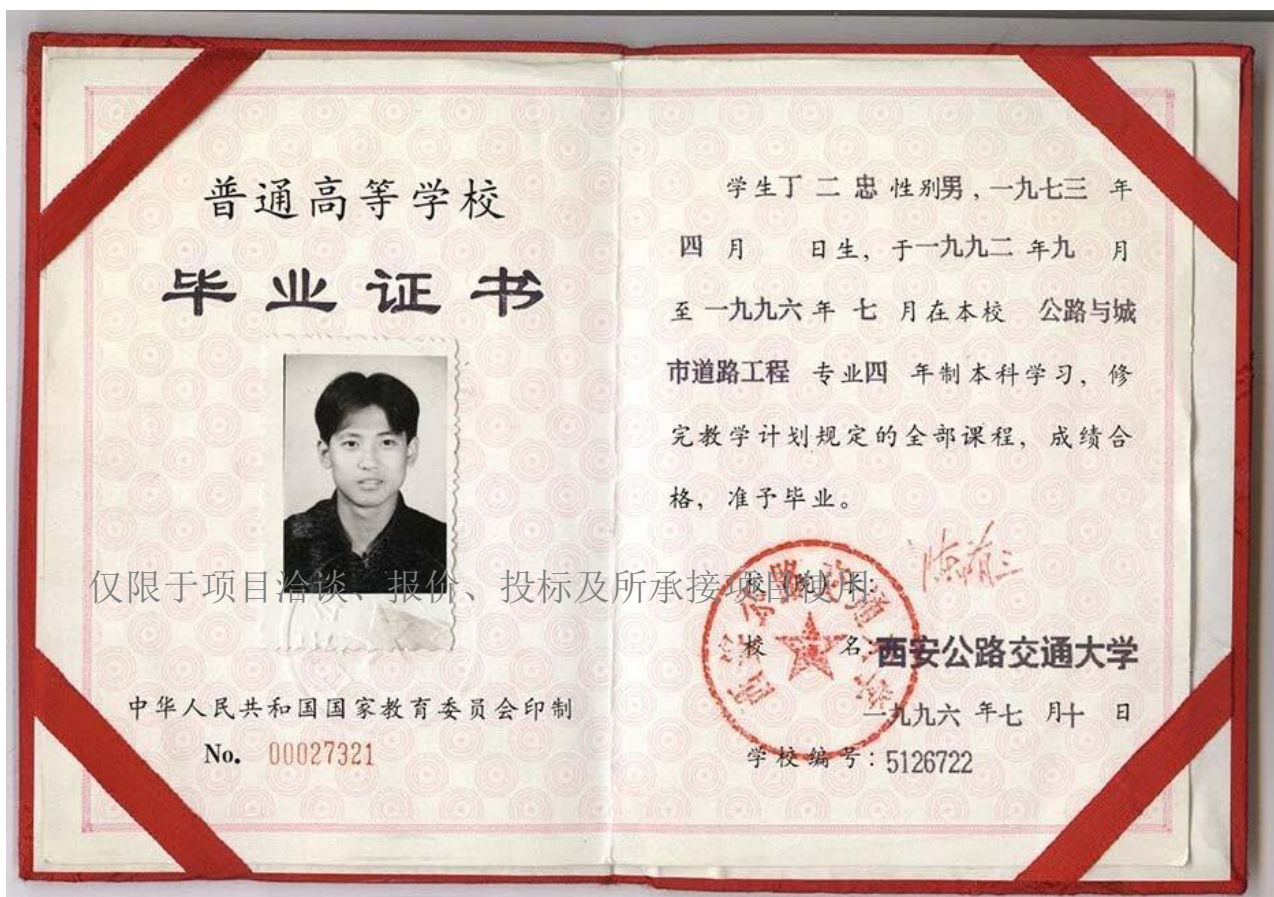 普通高等学校
毕业证书
仅限于项目洽谈、报价、投标及所承接项目使用
中华人民共和国国家教育委员会印制
No. 00027321
学生丁二忠 性别男，一九七三 年
四 月 日生，于一九九二 年九 月
至 一九九六 年 七 月在本校 公路与城
市道路工程 专业四 年制本科学习，修
完教学计划规定的全部课程，成绩合
格，准予毕业。
校（院）长：
校 名：西安公路交通大学
一九九六 年七 月十 日
学校编号：5126722